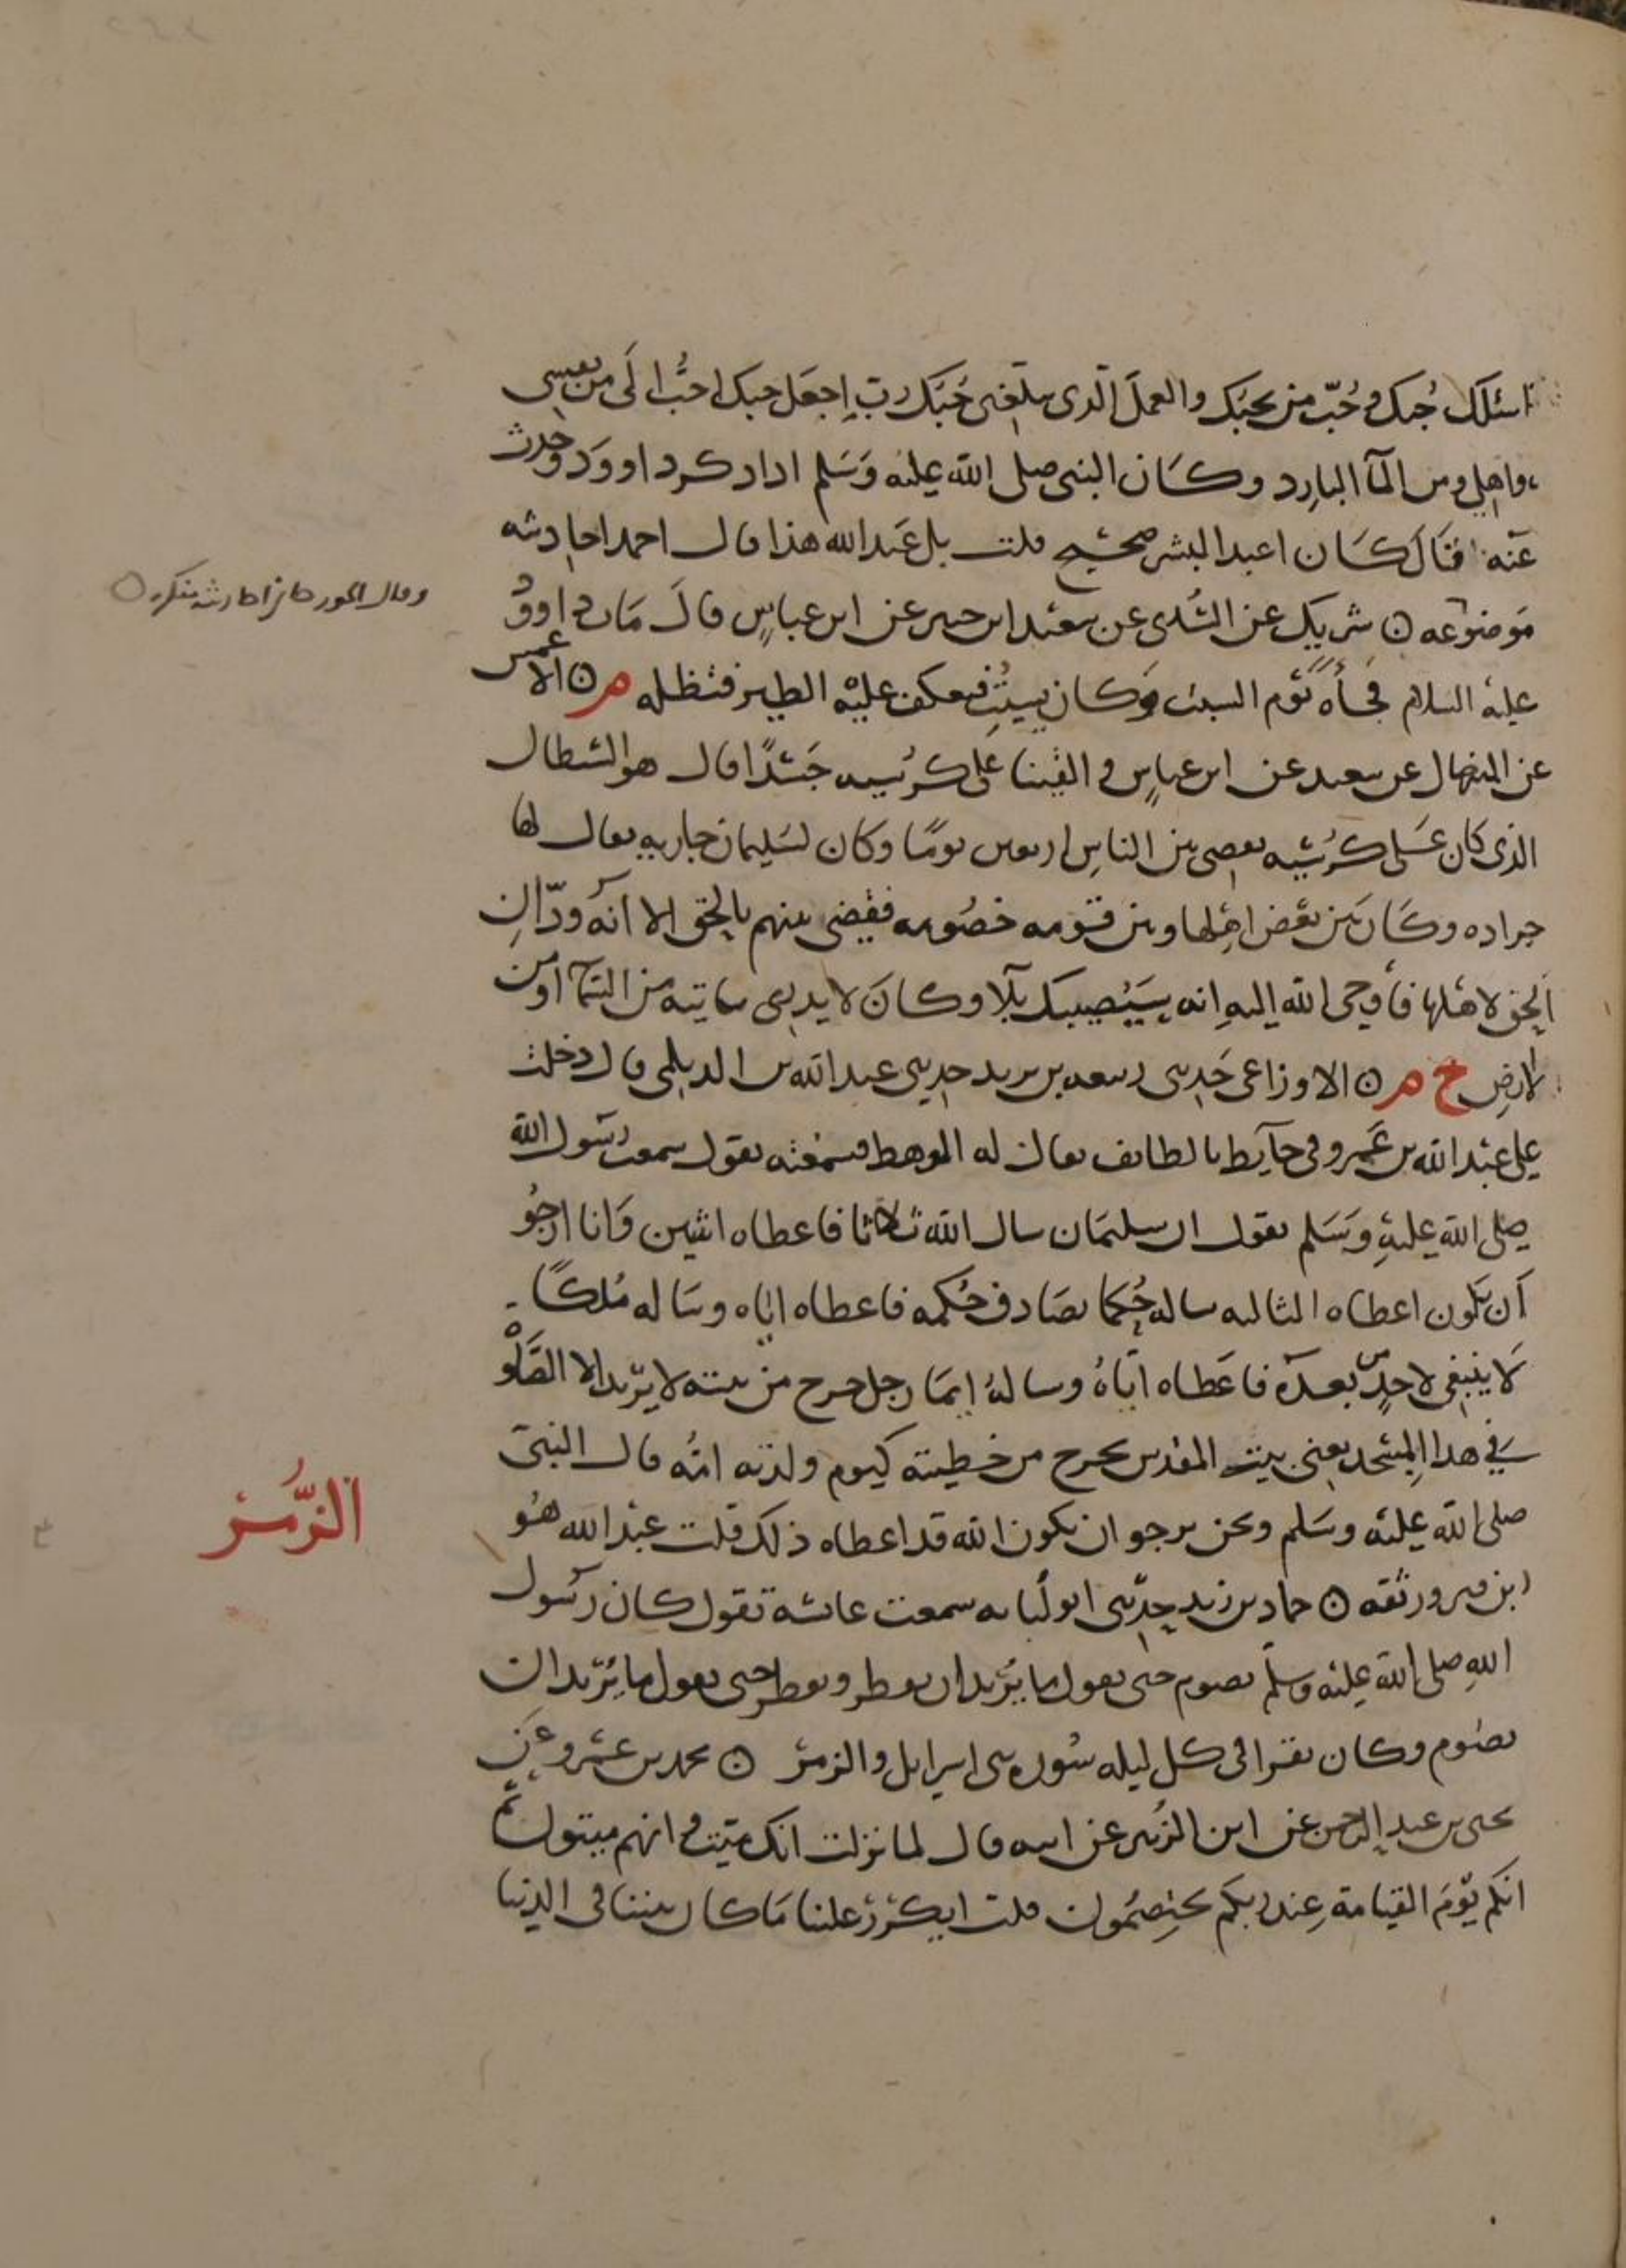 اسئلك حُبك وحُبّ من يحبك والعملَ الّذى يبلّغنى حُبّك ربِّ اِجعَل حبك احبُّ الَى من نفسى
واهلى ومن المآ البارِد وكَان النبى صلى الله عليه وَسَلم اذا ذكر داوود وحدث
عَنه قَالَ كَان اعبد البشر صحيح قلت بل عَبد الله هذا قال احمد احاديثه
مَوضوعه ن شريك عن السُّدى عن سعيد ابن جبير عن ابن عباسٍ قالَ مَات داوود
عليه السلام فجأةً يَوم السبت وَكان يسبتُ فعكف عليْه الطير فتظله م ن الاعمش
عن المنهال عن سعيد عن ابن عباسٍ والقينا على كرُسيه جَسَدًا قال هو الشيطان
الذى كان عَلى كرُسيه يقضى بين الناسِ اربعين يومًا وكان لسَليمان جاريه يقال لها
جراده وكَان بَين بَعض اهلها وبين قومه خصُومه فقضى بينهم بالحق الا انه ودّ ان
الحق لاهلها فأوحى الله اليهِ انه سَيُصيبك بَلآ وكانَ لا يدرى ياتيه من السمآ او من
الارضِ خ م ن الاوزاعى حَدثنى ربيعه بن يزيد حدثنى عبد الله بن الديلمى قال دخلت
على عبْد الله بن عَمرو فى حآيط بالطايف يقال له الوهط فسمعْته يقول سمعت رسُول الله
صلى الله عليهِ وَسَلم يقول ان سليمَان سال الله ثلاثا فاعطاه اثنين وَانا ارجُو
اَن يَكون اعطاه الثالثه ساله حُكما يصَادف حُكمه فاعطاه اياه وسَاله مُلكًا
لَا ينبغى لاحدٍ من بعده فاعَطاه ايّاهُ وسالهُ ايمَا رجل خرج من بيته لا يريد الا الصَّلوْه
فى هذا المِسْجد يعنى بيت المقدس يخرج من خطيئته كيوم ولدته امُّه قال النبى
صلى الله عليْه وسَلم ونحن نرجو ان يكون الله قد اعطاه ذلك قلت عبْد الله هُو
ابن فيروز ثقه ن حماد بن زيد حدثنى ابو لُبابه سمعت عائشه تقول كان رسُول
اللهِ صلى الله عليْه وسلم يصوم حتى يقول ما يُريد ان يفطر ويفطر حتى يقول ما يُريد ان
يصُوم وكان يقرا فى كل ليله سُوره بنى اسرايل والزمر ن محمد بن عمْرو عَن
يحيى بن عبد الرحمن عن ابن الزُبير عن ابيه قال لما نزلت انك ميّت وانهم ميتون ثُم
انكم يَوْمَ القيامة عِند ربكم تختصِمُون قلت ايكرَّرُ علينا مَا كان بيننا فى الدنيا
وقال الجوزجانى احاديثه منكره ن
الزُّمَر